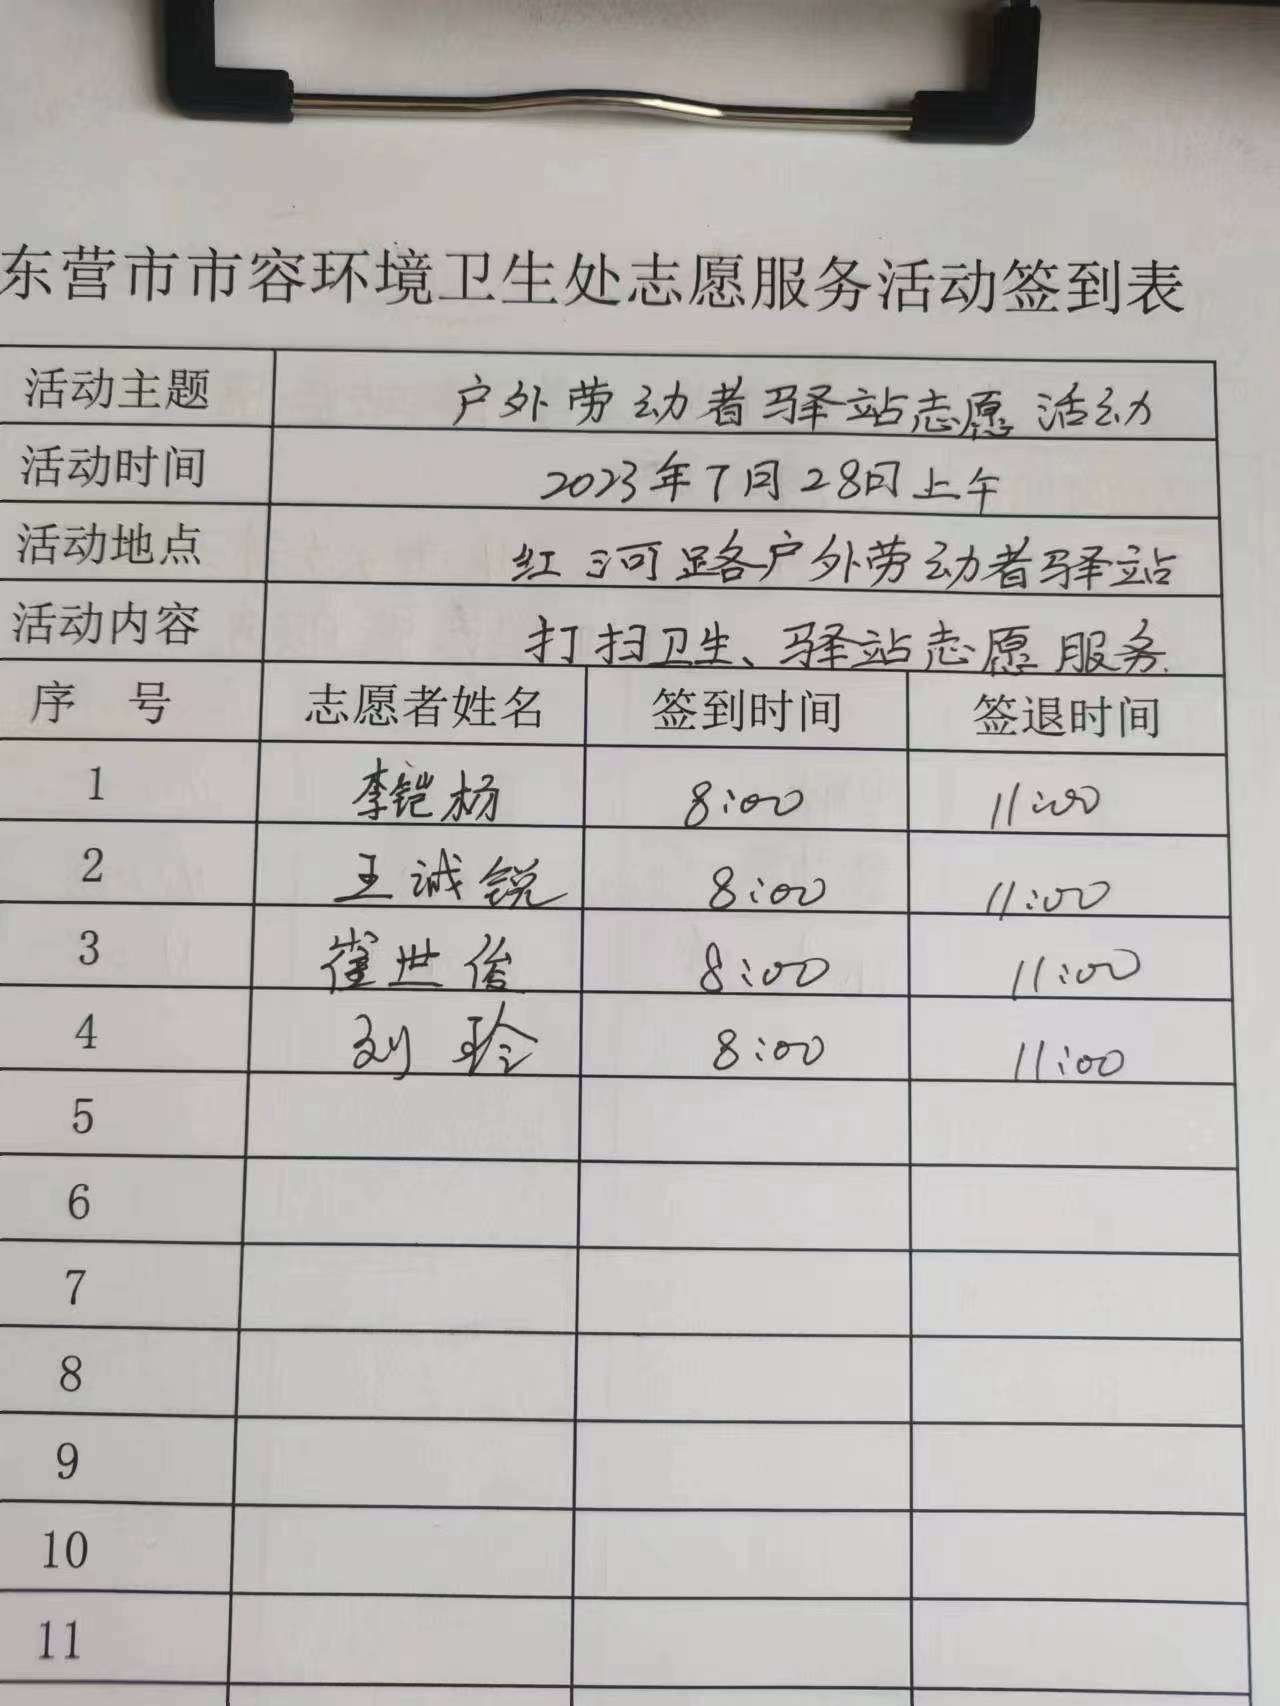 东营市市容环境卫生处志愿服务活动签到表
活动主题 户外劳动者驿站志愿活动
活动时间 2023年7月28日上午
活动地点 红河路户外劳动者驿站
活动内容 打扫卫生、驿站志愿服务.
序 号 志愿者姓名 签到时间 签退时间
1 李铠杨 8:00 11:00
2 王诚锐 8:00 11:00
3 崔世俊 8:00 11:00
4 刘玲 8:00 11:00
5
6
7
8
9
10
11